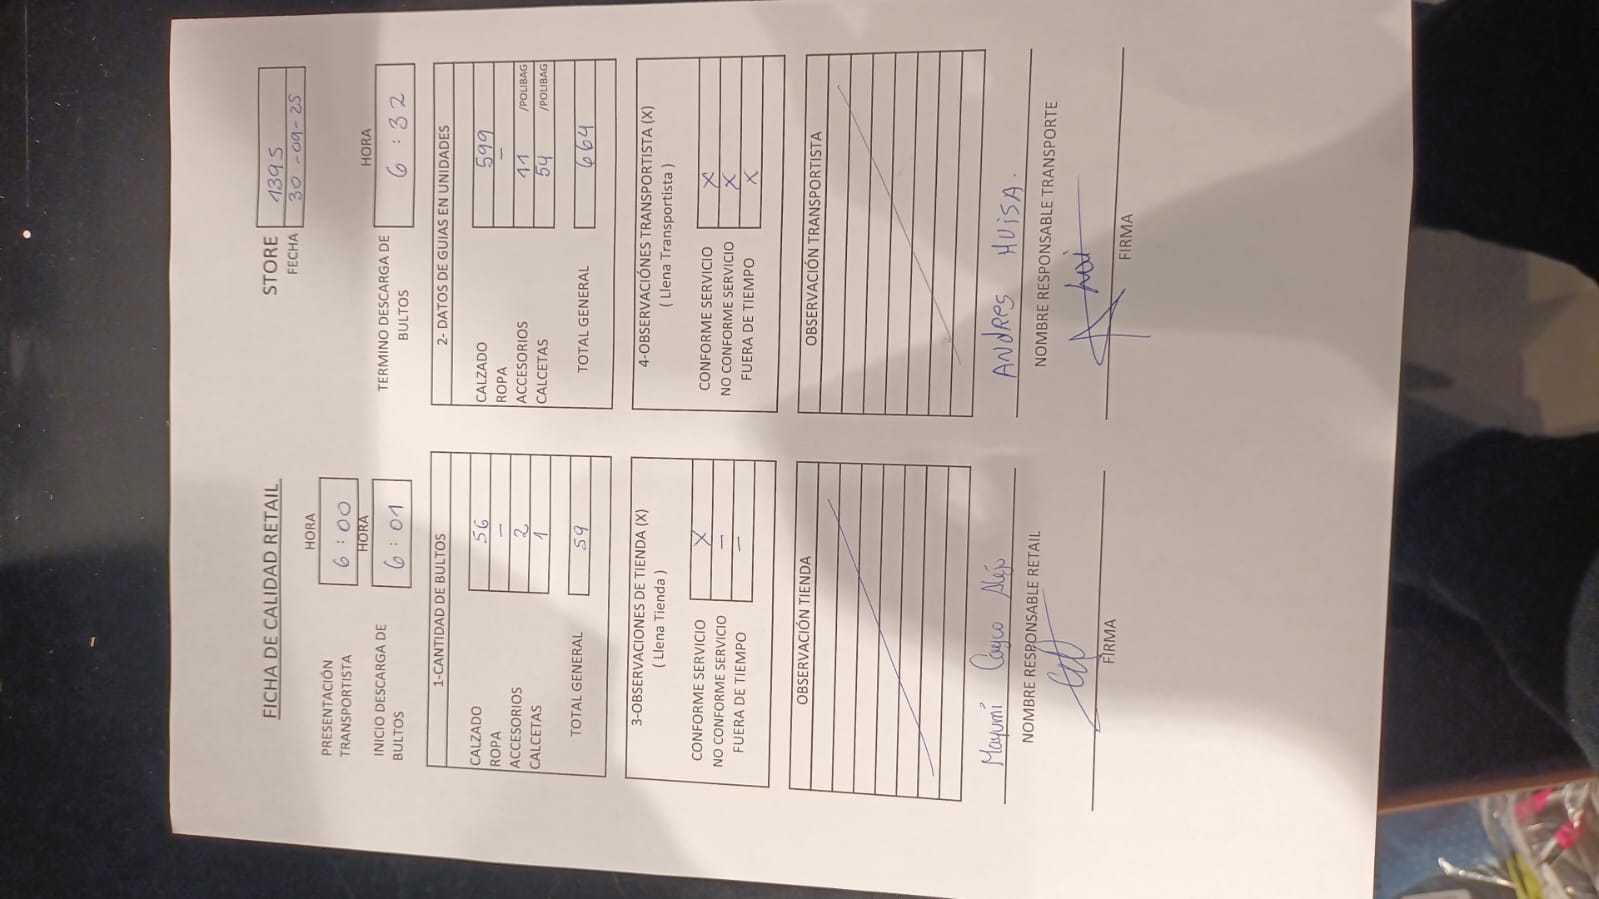 FICHA DE CALIDAD RETAIL
STORE 1395
FECHA 30-09-25
HORA
PRESENTACIÓN TRANSPORTISTA 6:00
HORA
INICIO DESCARGA DE BULTOS 6:01
HORA
TERMINO DESCARGA DE BULTOS 6:32
1-CANTIDAD DE BULTOS
CALZADO 56
ROPA -
ACCESORIOS 2
CALCETAS 1
TOTAL GENERAL 59
2- DATOS DE GUIAS EN UNIDADES
CALZADO 599
ROPA -
ACCESORIOS 11 /POLIBAG
CALCETAS 54 /POLIBAG
TOTAL GENERAL 664
3-OBSERVACIONES DE TIENDA (X)
( Llena Tienda )
CONFORME SERVICIO X
NO CONFORME SERVICIO -
FUERA DE TIEMPO -
4-OBSERVACIÓNES TRANSPORTISTA (X)
( Llena Transportista )
CONFORME SERVICIO X
NO CONFORME SERVICIO X
FUERA DE TIEMPO X
OBSERVACIÓN TIENDA
OBSERVACIÓN TRANSPORTISTA
Mayumi Cayco Alejo
NOMBRE RESPONSABLE RETAIL
FIRMA
ANDRES HUISA.
NOMBRE RESPONSABLE TRANSPORTE
FIRMA